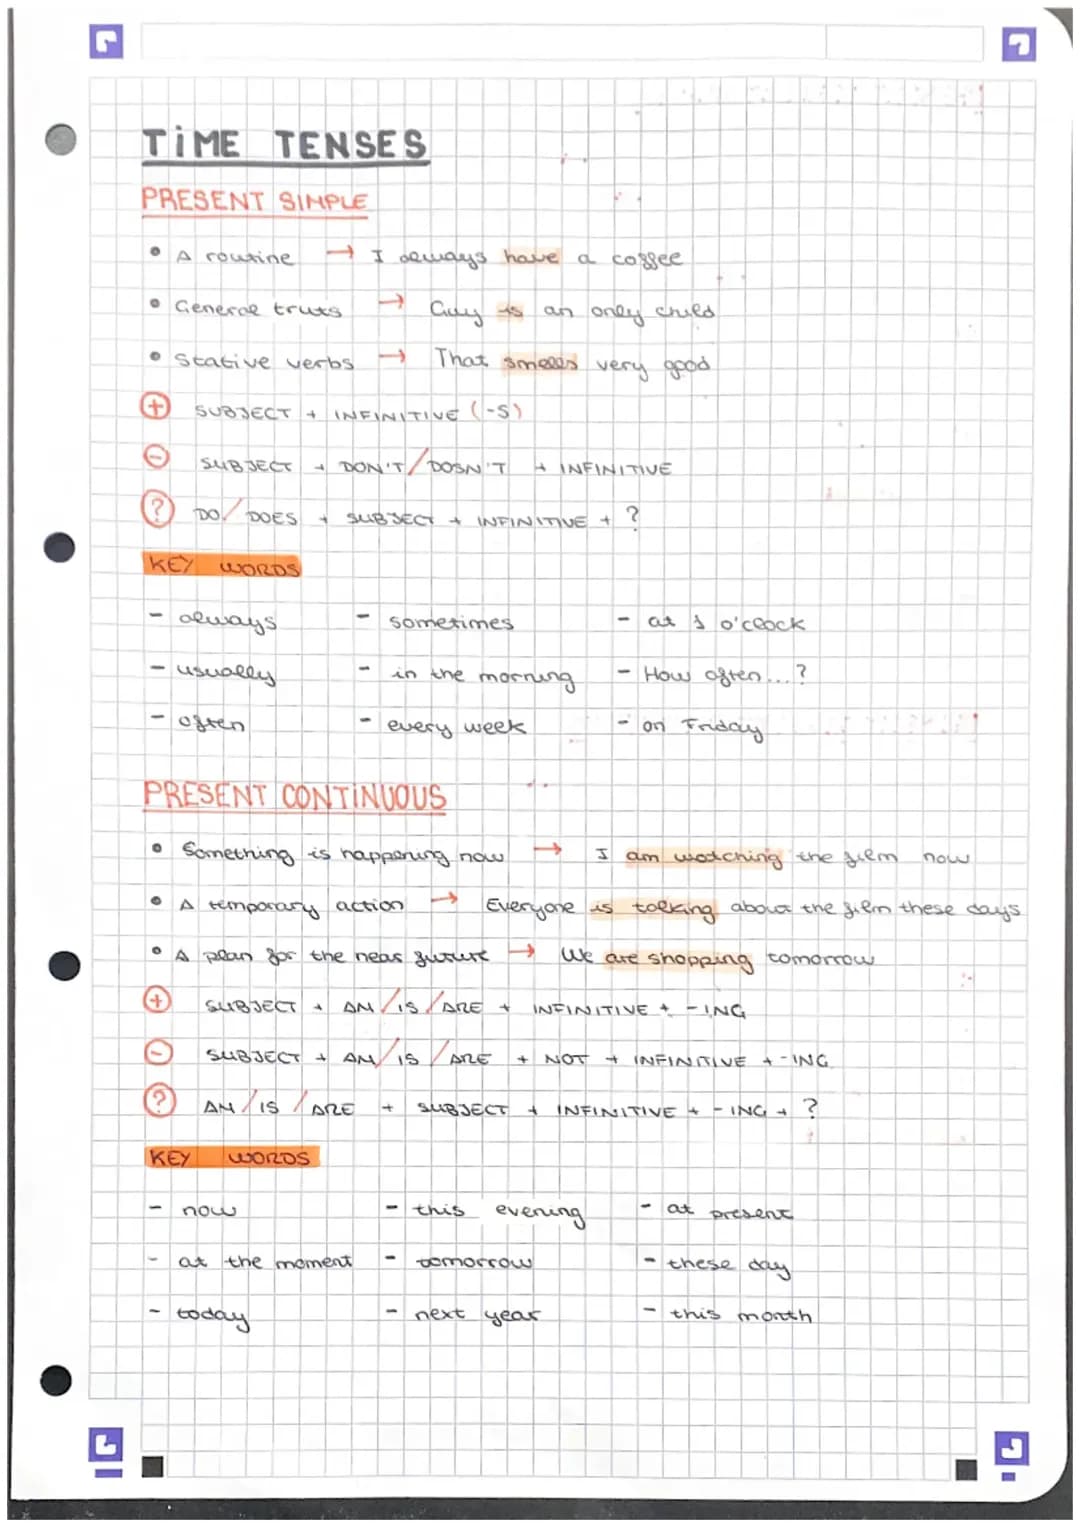 TIME TENSES
PRESENT SIMPLE
• A routine → I always have a coffee
• General truts → Guy is an only child
• Stative verbs → That smells very good
(+) SUBJECT + INFINITIVE (-S)
(-) SUBJECT + DON'T / DOSN'T + INFINITIVE
(?) DO / DOES + SUBJECT + INFINITIVE + ?
KEY WORDS
- always - sometimes - at o'clock
- usually - in the morning - How often...?
- often - every week - on Friday
PRESENT CONTINUOUS
• Something is happening now → I am watching the film now
• A temporary action → Everyone is talking about the film these days
• A plan for the near future → We are shopping tomorrow
(+) SUBJECT + AM / IS / ARE + INFINITIVE + -ING
(-) SUBJECT + AM / IS / ARE + NOT + INFINITIVE + -ING
(?) AM / IS / ARE + SUBJECT + INFINITIVE + -ING + ?
KEY WORDS
- now - this evening - at present
- at the moment - tomorrow - these day
- today - next year - this month